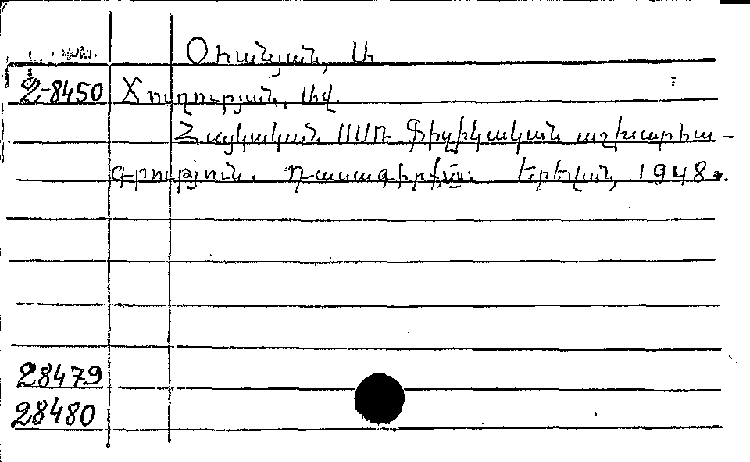 Օհանյան, Ա
2-8450 Ժուղուրյան, Ավ.
Հայկական ՍՍՌ Ֆիզիկական աշխարհա-
գրություն. Դասագիրք։ Երևան, 1948.
28479
28480